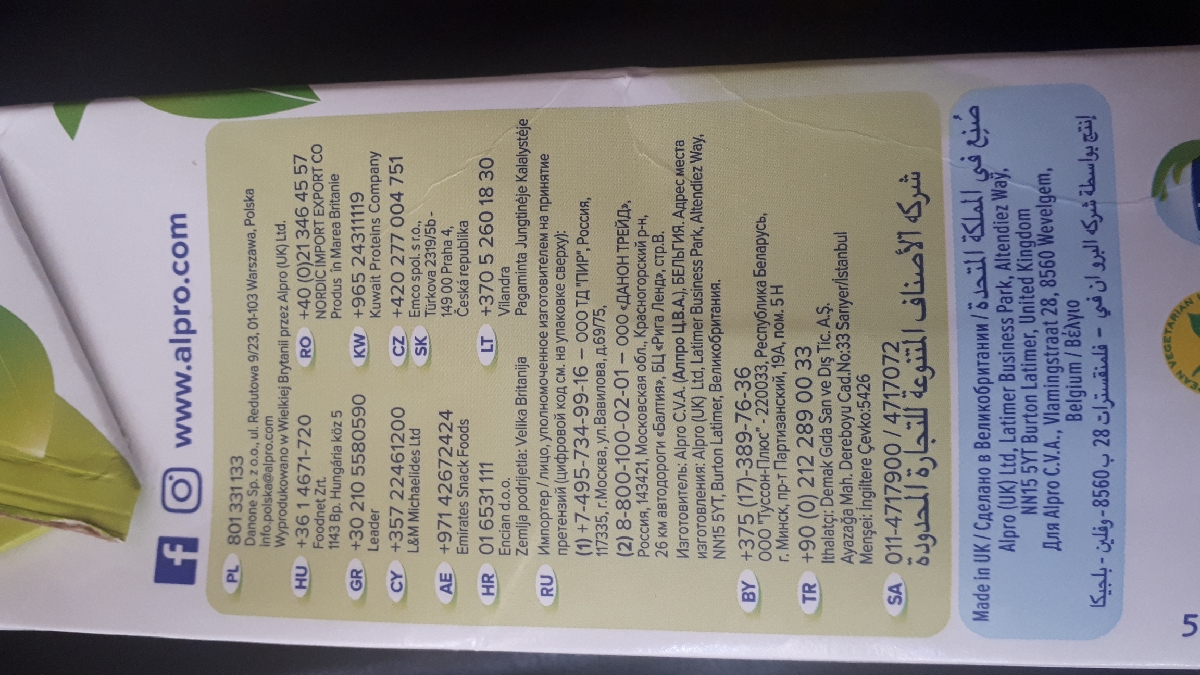 www.alpro.com
PL 801 331133
Danone Sp. z o.o., ul. Redutowa 9/23, 01-103 Warszawa, Polska
info.polska@alpro.com
Wyprodukowano w Wielkiej Brytanii przez Alpro (UK) Ltd.
HU +36 1 4671-720
Foodnet Zrt.
1143 Bp. Hungária köz 5
RO +40 (0)21 346 45 57
NORDIC IMPORT EXPORT CO
Produs în Marea Britanie
GR +30 210 5580590
Leader
KW +965 24311119
Kuwait Proteins Company
CY +357 22461200
L&M Michaelides Ltd
CZ +420 277 004 751
SK Emco spol. s r.o.,
Türkova 2319/5b -
149 00 Praha 4,
Česká republika
AE +971 42672424
Emirates Snack Foods
HR 01 6531 111
Encian d.o.o.
Zemlja podrijetla: Velika Britanija
LT +370 5 260 18 30
Vilandra
Pagaminta Jungtinėje Kalalystėje
RU Импортер / лицо, уполномоченное изготовителем на принятие
претензий (цифровой код см. на упаковке сверху):
(1) +7-495-734-99-16 – ООО ТД "ПИР", Россия,
117335, г.Москва, ул.Вавилова, д.69/75,
(2) 8-800-100-02-01 – ООО «ДАНОН ТРЕЙД»,
Россия, 143421, Московская обл., Красногорский р-н,
26 км автодороги «Балтия», БЦ «Рига Ленд», стр.В.
Изготовитель: Alpro C.V.A. (Алпро Ц.В.А.), БЕЛЬГИЯ. Адрес места
изготовления: Alpro (UK) Ltd, Latimer Business Park, Altendiez Way,
NN15 5YT, Burton Latimer, Великобритания.
BY +375 (17)-389-76-36
ООО "Туссон-Плюс" - 220033, Республика Беларусь,
г. Минск, пр-т Партизанский, 19А, пом. 5 Н
TR +90 (0) 212 289 00 33
Ithalatçı: Demak Gıda San ve Dış Tic. A.Ş.
Ayazağa Mah. Dereboyu Cad.No:33 Sarıyer/İstanbul
Menşei: İngiltere Çevko:5426
SA 011-4717900 / 4717072
شركة الأصناف المتنوعة للتجارة المحدودة
Made in UK / Сделано в Великобритании / صُنِع في المملكة المتحدة
Alpro (UK) Ltd, Latimer Business Park, Altendiez Way,
NN15 5YT Burton Latimer, United Kingdom
Для Alpro C.V.A., Vlamingstraat 28, 8560 Wevelgem,
Belgium / Βέλγιο
إنتج بواسطة شركة البرو ان في - فلمنقسترات 28 ب 8560 - وفلين - بلجيكا
VEGETARIAN
5